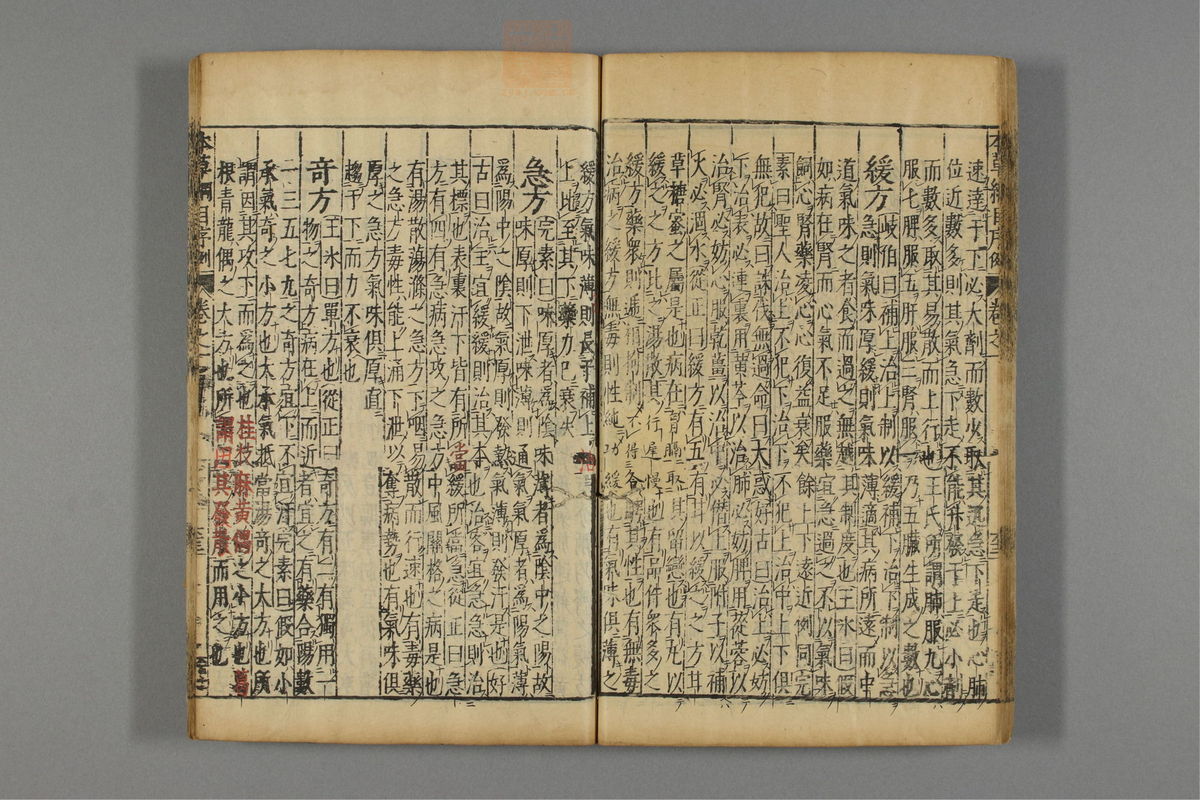 速達于下必大劑而數少取其迅急下走也心肺
位近數多則其氣急下走不能升發于上必小劑
而數多取其易散而上行也王氏所謂肺服九心
服七脾服五肝服三腎服一乃五臟生成之數也
緩方岐伯曰補上治上制以緩補下治下制以急
急則氣味厚緩則氣味薄適其病所遠而中
道氣味之者食而過之無越其制度也王冰曰假
如病在腎而心氣不足服藥宜急過之不以氣味
飼心腎藥凌心心復益衰矣餘上下遠近例同完
素曰聖人治上不犯下治下不犯上治中上下俱
無犯故曰誅伐無過命曰大惑好古曰治上必妨
下治表必連裏用黃芩以治肺必妨脾用蓯蓉以
治腎必妨心服乾薑以治中必僭上服附子以補
火必涸水從正曰緩方有五有甘以緩之之方甘
草糖蜜之屬是也病在胸膈取其留戀也有丸以
緩之之方比之湯散其行遲慢也有品件衆多之
緩方藥衆則遞相拘制不得各騁其性也有無毒
治病之緩方無毒則性純功緩也有氣味俱薄之
緩方氣味薄則長于補上治
上比至其下藥力已衰矣
急方完素曰味厚者爲陰味薄者爲陰中之陽故
味厚則下泄味薄則通氣氣厚者爲陽氣薄
爲陽中之陰故氣厚則發熱氣薄則發汗是也好
古曰治主宜緩緩則治其本也治客宜急急則治
其標也表裏汗下皆有所當緩所當急從正曰急
方有四有急病急攻之急方中風關格之病是也
有湯散蕩滌之急方下咽易散而行速也有毒藥
之急方毒性能上涌下泄以奪病勢也有氣味俱
厚之急方氣味俱厚直
趨于下而力不衰也
奇方王冰曰單方也從正曰奇方有二有獨用一
物之奇方病在上而近者宜之有藥合陽數
一三五七九之奇方宜下不宜汗完素曰假如小
承氣奇之小方也大承氣抵當湯奇之大方也所
謂因其攻下而爲之也桂枝麻黃偶之小方也葛
根青龍偶之大方也所謂因其發表而用之也